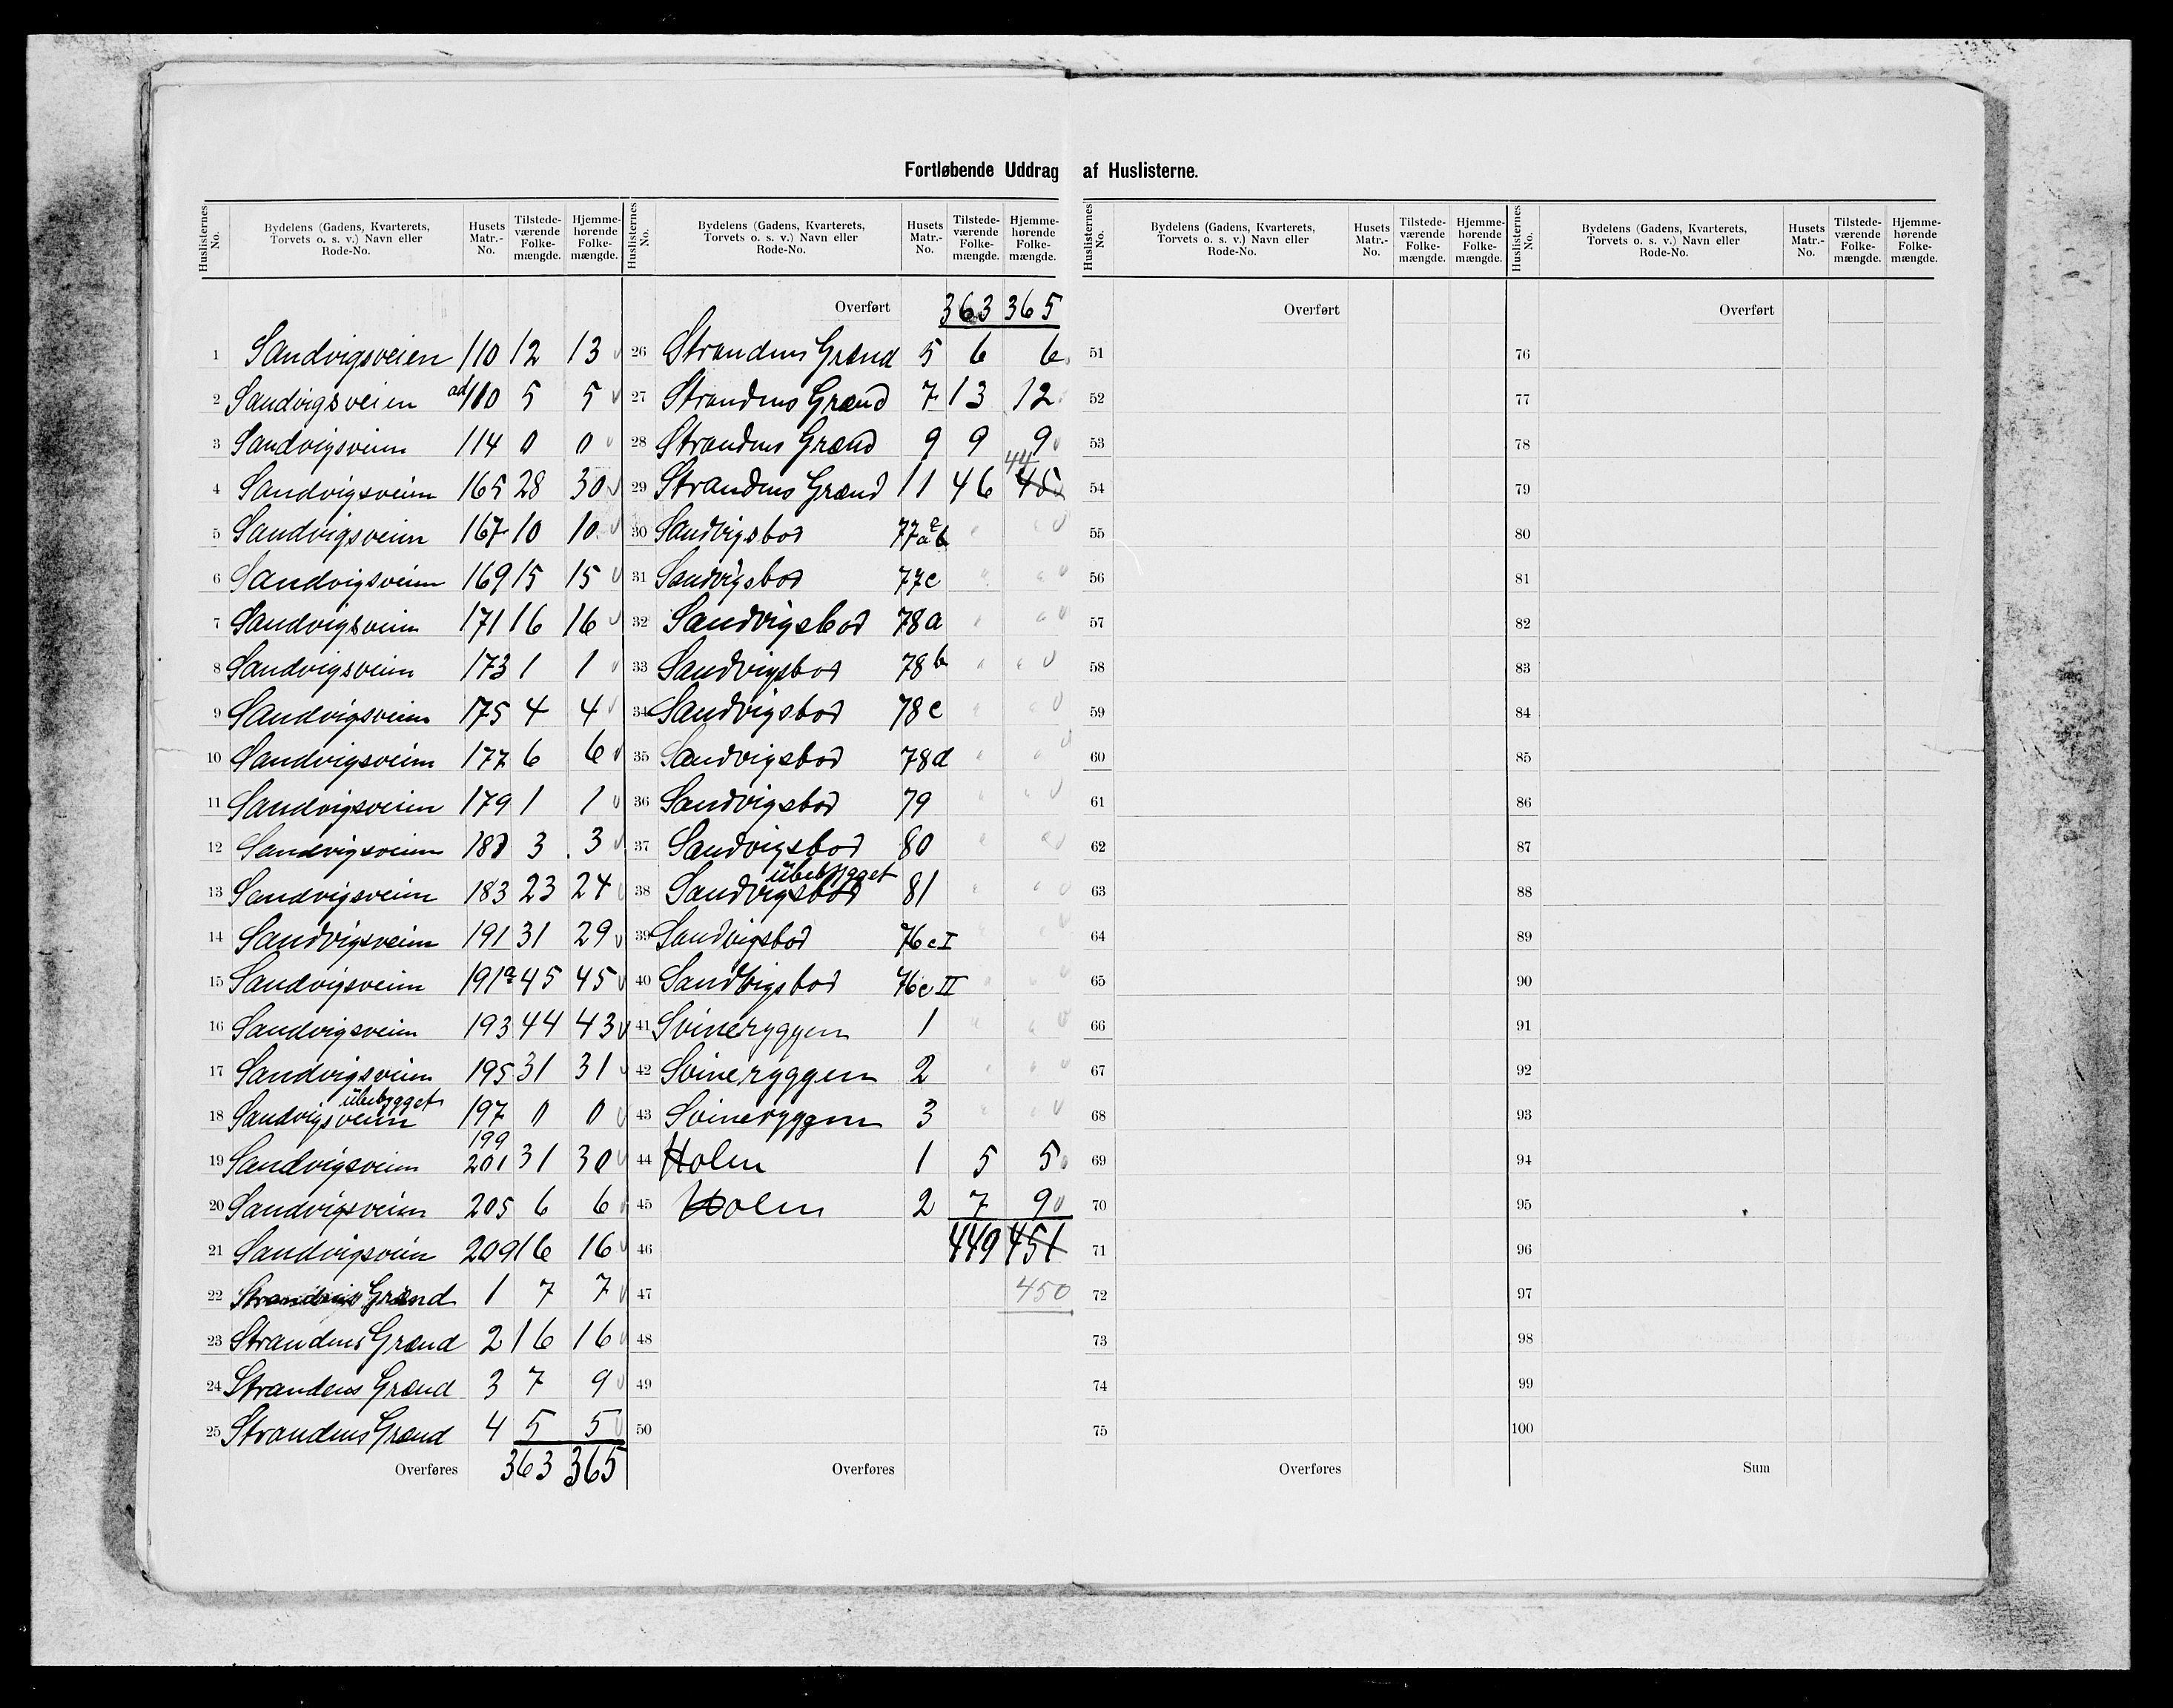 Fortløbende Uddrag af Huslisterne.
Huslisternes No. Bydelens (Gadens, Kvarterets, Torvets o. s. v.) Navn eller Rode-No. Husets Matr.-No. Tilstedeværende Folkemængde. Hjemmehørende Folkemængde.
1 Sandvigsveien 110 12 13
2 Sandvigsveien ad 110 5 5
3 Sandvigsveien 114 0 0
4 Sandvigsveien 165 28 30
5 Sandvigsveien 167 10 10
6 Sandvigsveien 169 15 15
7 Sandvigsveien 171 16 16
8 Sandvigsveien 173 1 1
9 Sandvigsveien 175 4 4
10 Sandvigsveien 177 6 6
11 Sandvigsveien 179 1 1
12 Sandvigsveien 181 3 3
13 Sandvigsveien 183 23 24
14 Sandvigsveien 191 31 29
15 Sandvigsveien 191a 45 45
16 Sandvigsveien 193 44 43
17 Sandvigsveien 195 31 31
18 Sandvigsveien ubebygget 197 0 0
19 Sandvigsveien 199 201 31 30
20 Sandvigsveien 205 6 6
21 Sandvigsveien 209 16 16
22 Strandens Grænd 1 7 7
23 Strandens Grænd 2 16 16
24 Strandens Grænd 3 7 9
25 Strandens Grænd 4 5 5
Overføres 363 365
Huslisternes No. Bydelens (Gadens, Kvarterets, Torvets o. s. v.) Navn eller Rode-No. Husets Matr.-No. Tilstedeværende Folkemængde. Hjemmehørende Folkemængde.
Overført 363 365
26 Strandens Grænd 5 6 6
27 Strandens Grænd 7 13 12
28 Strandens Grænd 9 9 9
29 Strandens Grænd 11 46 45 44
30 Sandvigsbod 77 a & b
31 Sandvigsbod 77c
32 Sandvigsbod 78a
33 Sandvigsbod 78b
34 Sandvigsbod 78c
35 Sandvigsbod 78d
36 Sandvigsbod 79
37 Sandvigsbod 80
38 Sandvigsbod ubebygget 81
39 Sandvigsbod 76 c I
40 Sandvigsbod 76 c II
41 Svineryggen 1
42 Svineryggen 2
43 Svineryggen 3
44 Holm 1 5 5
45 Holm 2 7 9
46 449 451
47 450
48
49
50
Overføres
Huslisternes No. Bydelens (Gadens, Kvarterets, Torvets o. s. v.) Navn eller Rode-No. Husets Matr.-No. Tilstedeværende Folkemængde. Hjemmehørende Folkemængde.
Overført
51
52
53
54
55
56
57
58
59
60
61
62
63
64
65
66
67
68
69
70
71
72
73
74
75
Overføres
Huslisternes No. Bydelens (Gadens, Kvarterets, Torvets o. s. v.) Navn eller Rode-No. Husets Matr.-No. Tilstedeværende Folkemængde. Hjemmehørende Folkemængde.
Overført
76
77
78
79
80
81
82
83
84
85
86
87
88
89
90
91
92
93
94
95
96
97
98
99
100
Sum